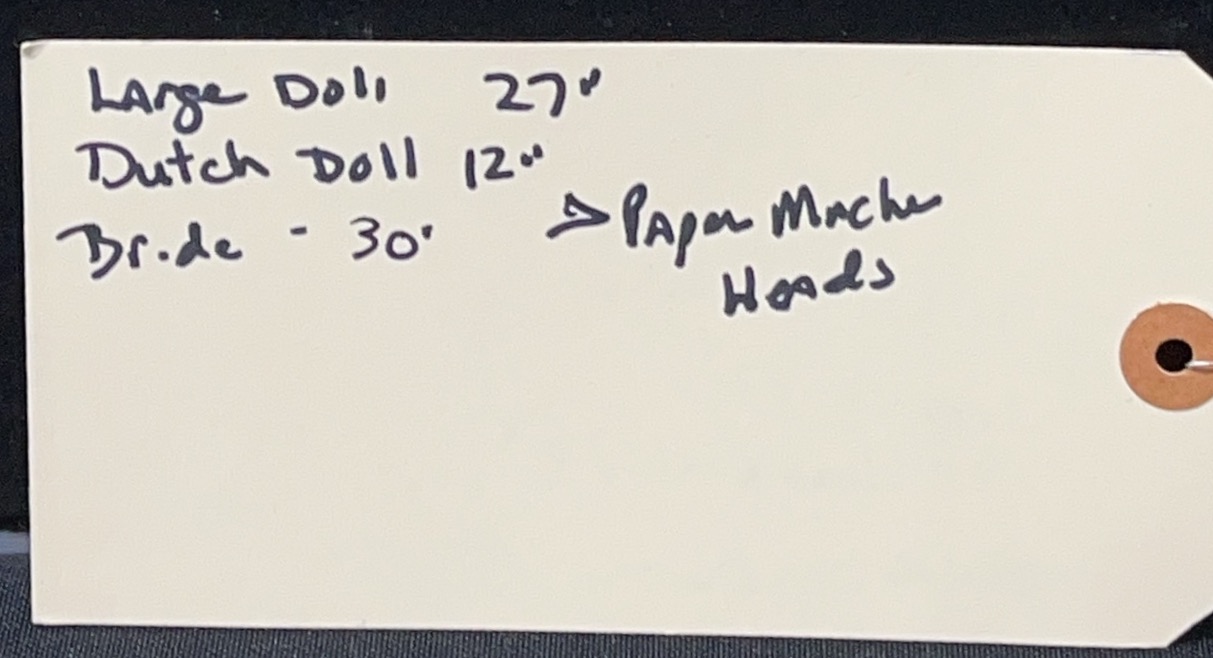 Large Doll 27"
Dutch Doll 12"
Bride - 30"
> Paper Mache
Heads